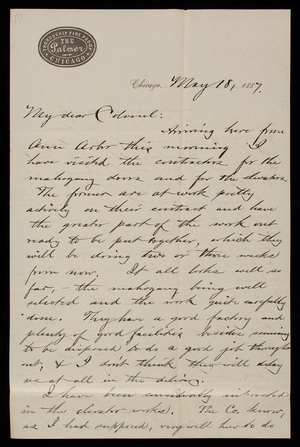 THOROUGHLY FIRE PROOF
THE
Palmer
CHICAGO
Chicago, May 18, 1887.
My dear Colonel:
Arriving here from
Ann Arbor this morning I
have visited the contractors for the
mahogany doors and for the elevators.
The former are at work pretty
actively on their contract and have
the greater part of the work out
ready to be put together, which they
will be doing two or three weeks
from now. It all looks well so
far, – the mahogany being well
selected and the work quite carefully
done. They have a good factory and
plenty of good facilities besides seeming
to be disposed to do a good job through-
out, & I don't think they will delay
us at all in the delivery.
I have been considerably interested
in the elevator works. The Co. know,
as I had supposed, very well how to do